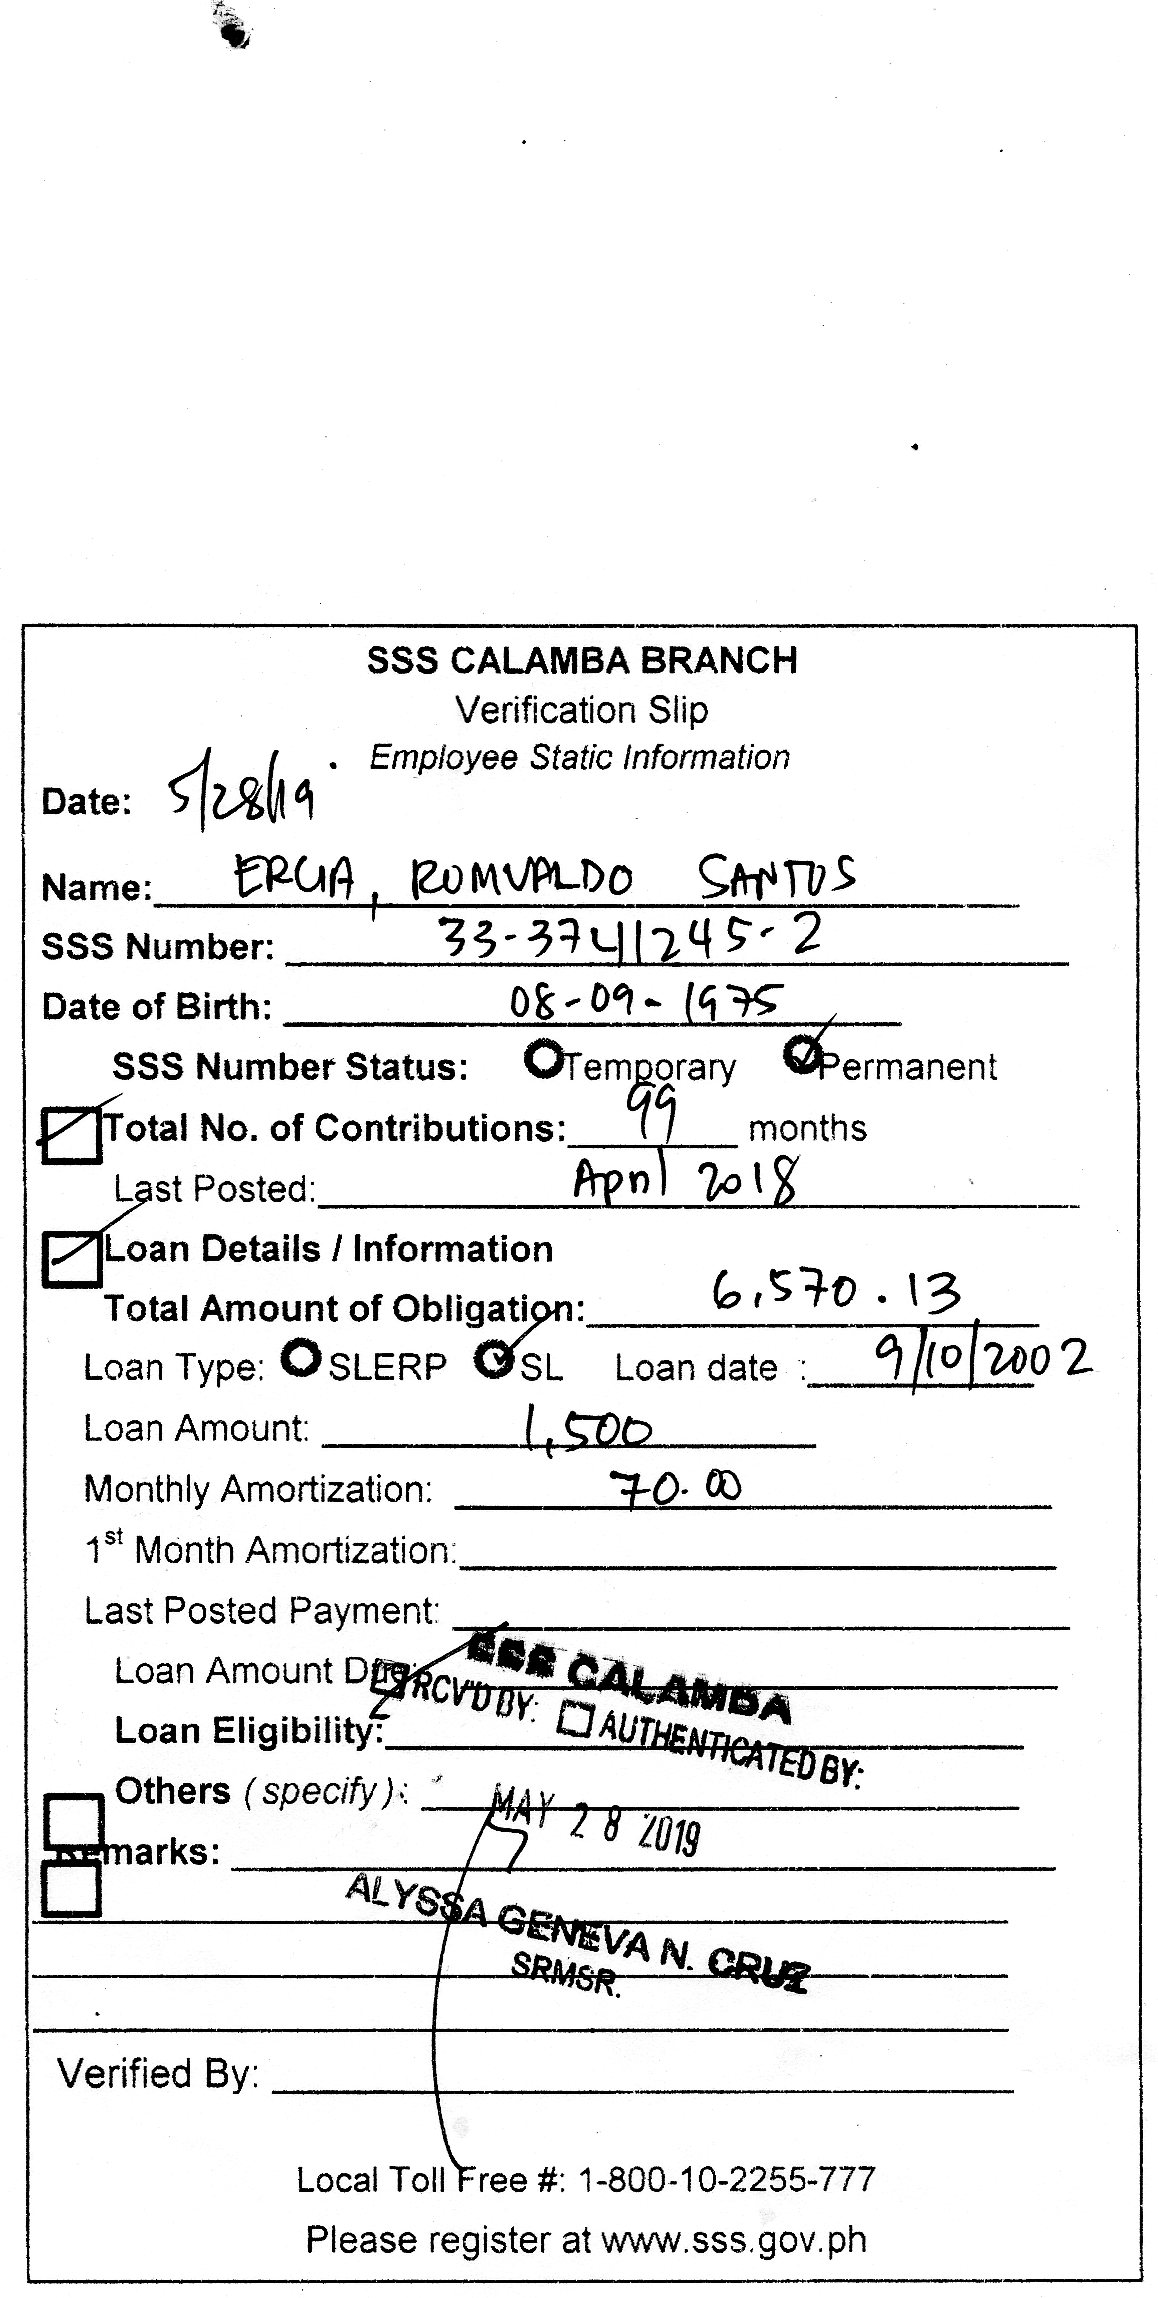 SSS CALAMBA BRANCH
Verification Slip
Employee Static Information
Date: 5/28/19
Name: ERCIA, ROMUALDO SANTOS
SSS Number: 33-3741245-2
Date of Birth: 08-09-1975
SSS Number Status: Temporary Permanent
Total No. of Contributions: 99 months
Last Posted: April 2018
Loan Details / Information
Total Amount of Obligation: 6,570.13
Loan Type: SLERP SL Loan date : 9/10/2002
Loan Amount: 1,500
Monthly Amortization: 70.00
1st Month Amortization:
Last Posted Payment:
SSS CALAMBA
Loan Amount Due:
RCV'D BY: AUTHENTICATED BY:
Loan Eligibility:
Others (specify):
MAY 28 2019
Remarks:
ALYSSA GENEVA N. CRUZ
SRMSR.
Verified By:
Local Toll Free #: 1-800-10-2255-777
Please register at www.sss.gov.ph